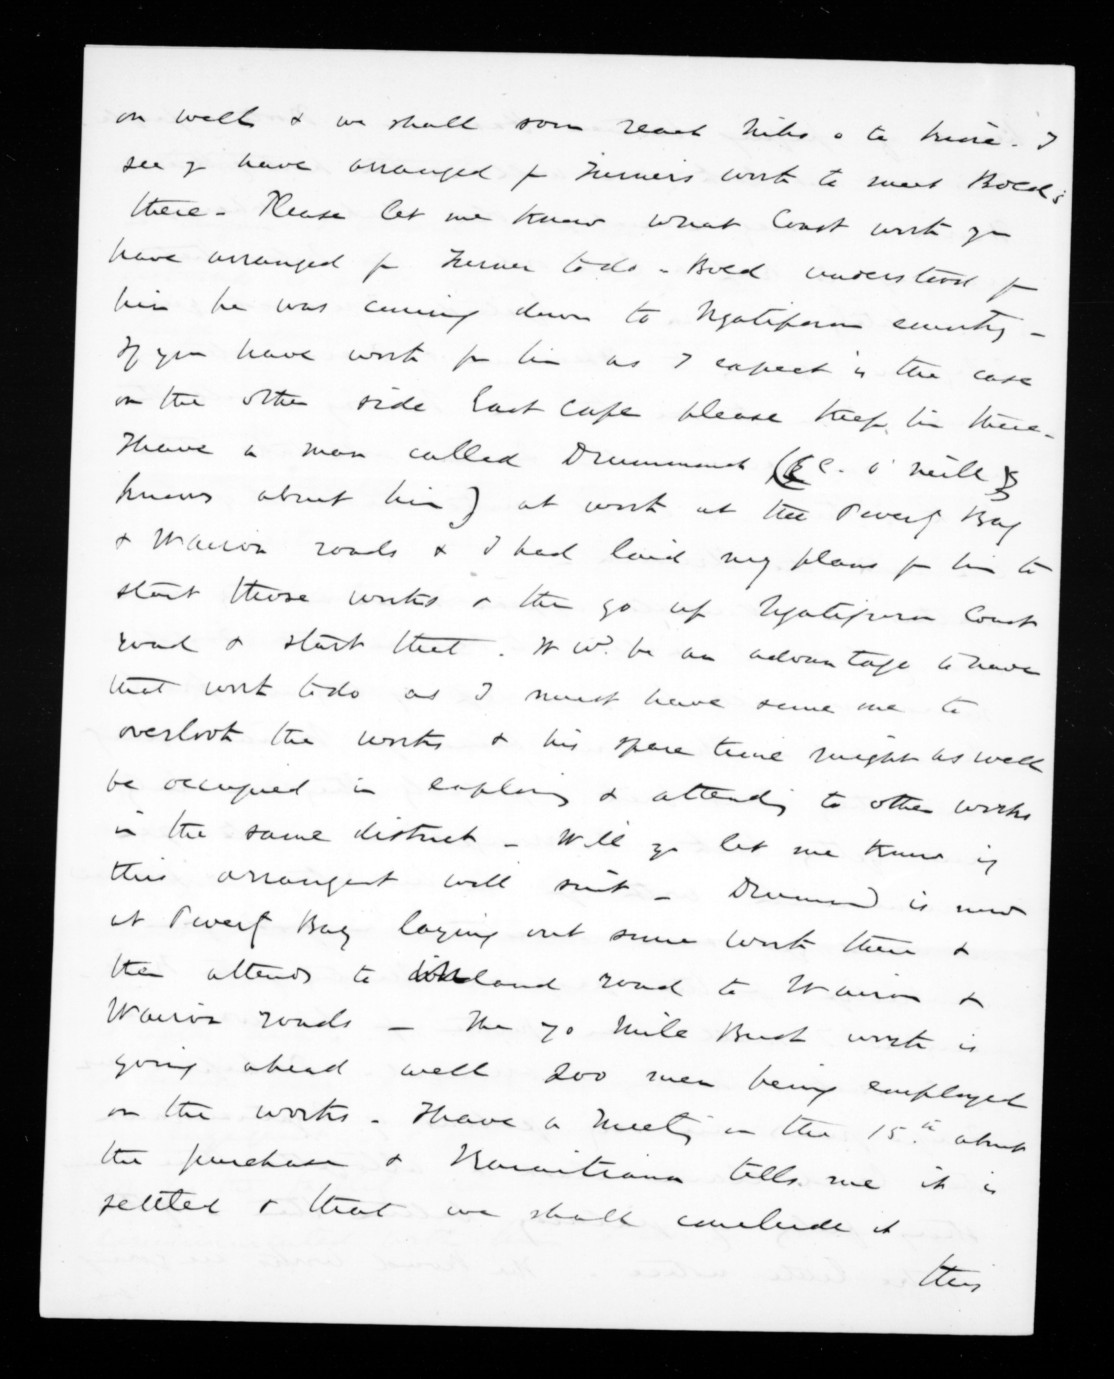 on well & we shall soon reach Niho o te kiore. I
see yr have arranged for Turner's work to meet Bold's
there - Please let me know what Coast work you
have arranged for Turner to do - Bold understood fr
him he was coming down to Ngatiporou country -
If you have work for him as I expect is the case
on the other side East Cape please keep him there -
I have a man called Drummond (C. O'Neill
knows about him) at work at the Poverty Bay
& Wairoa roads & I had laid my plans for him to
start those works & then go up Ngatiporou Coast
road & start that. It wd. be an advantage to have
that work to do as I must have some one to
overlook the works & his spare time might as well
be occupied in exploring & attending to other works
in the same district - Will yr let me know if
this arrangemt will suit - Drummond is now
at Poverty Bay laying out some work there &
then attends to inland road to Wairoa &
Wairoa roads - The 70 Mile Bush work is
going ahead well 200 men being employed
on the works - I have a Meeting on the 15th. about
the purchase & Karaitiana tells me it is
settled & that we shall conclude it
this